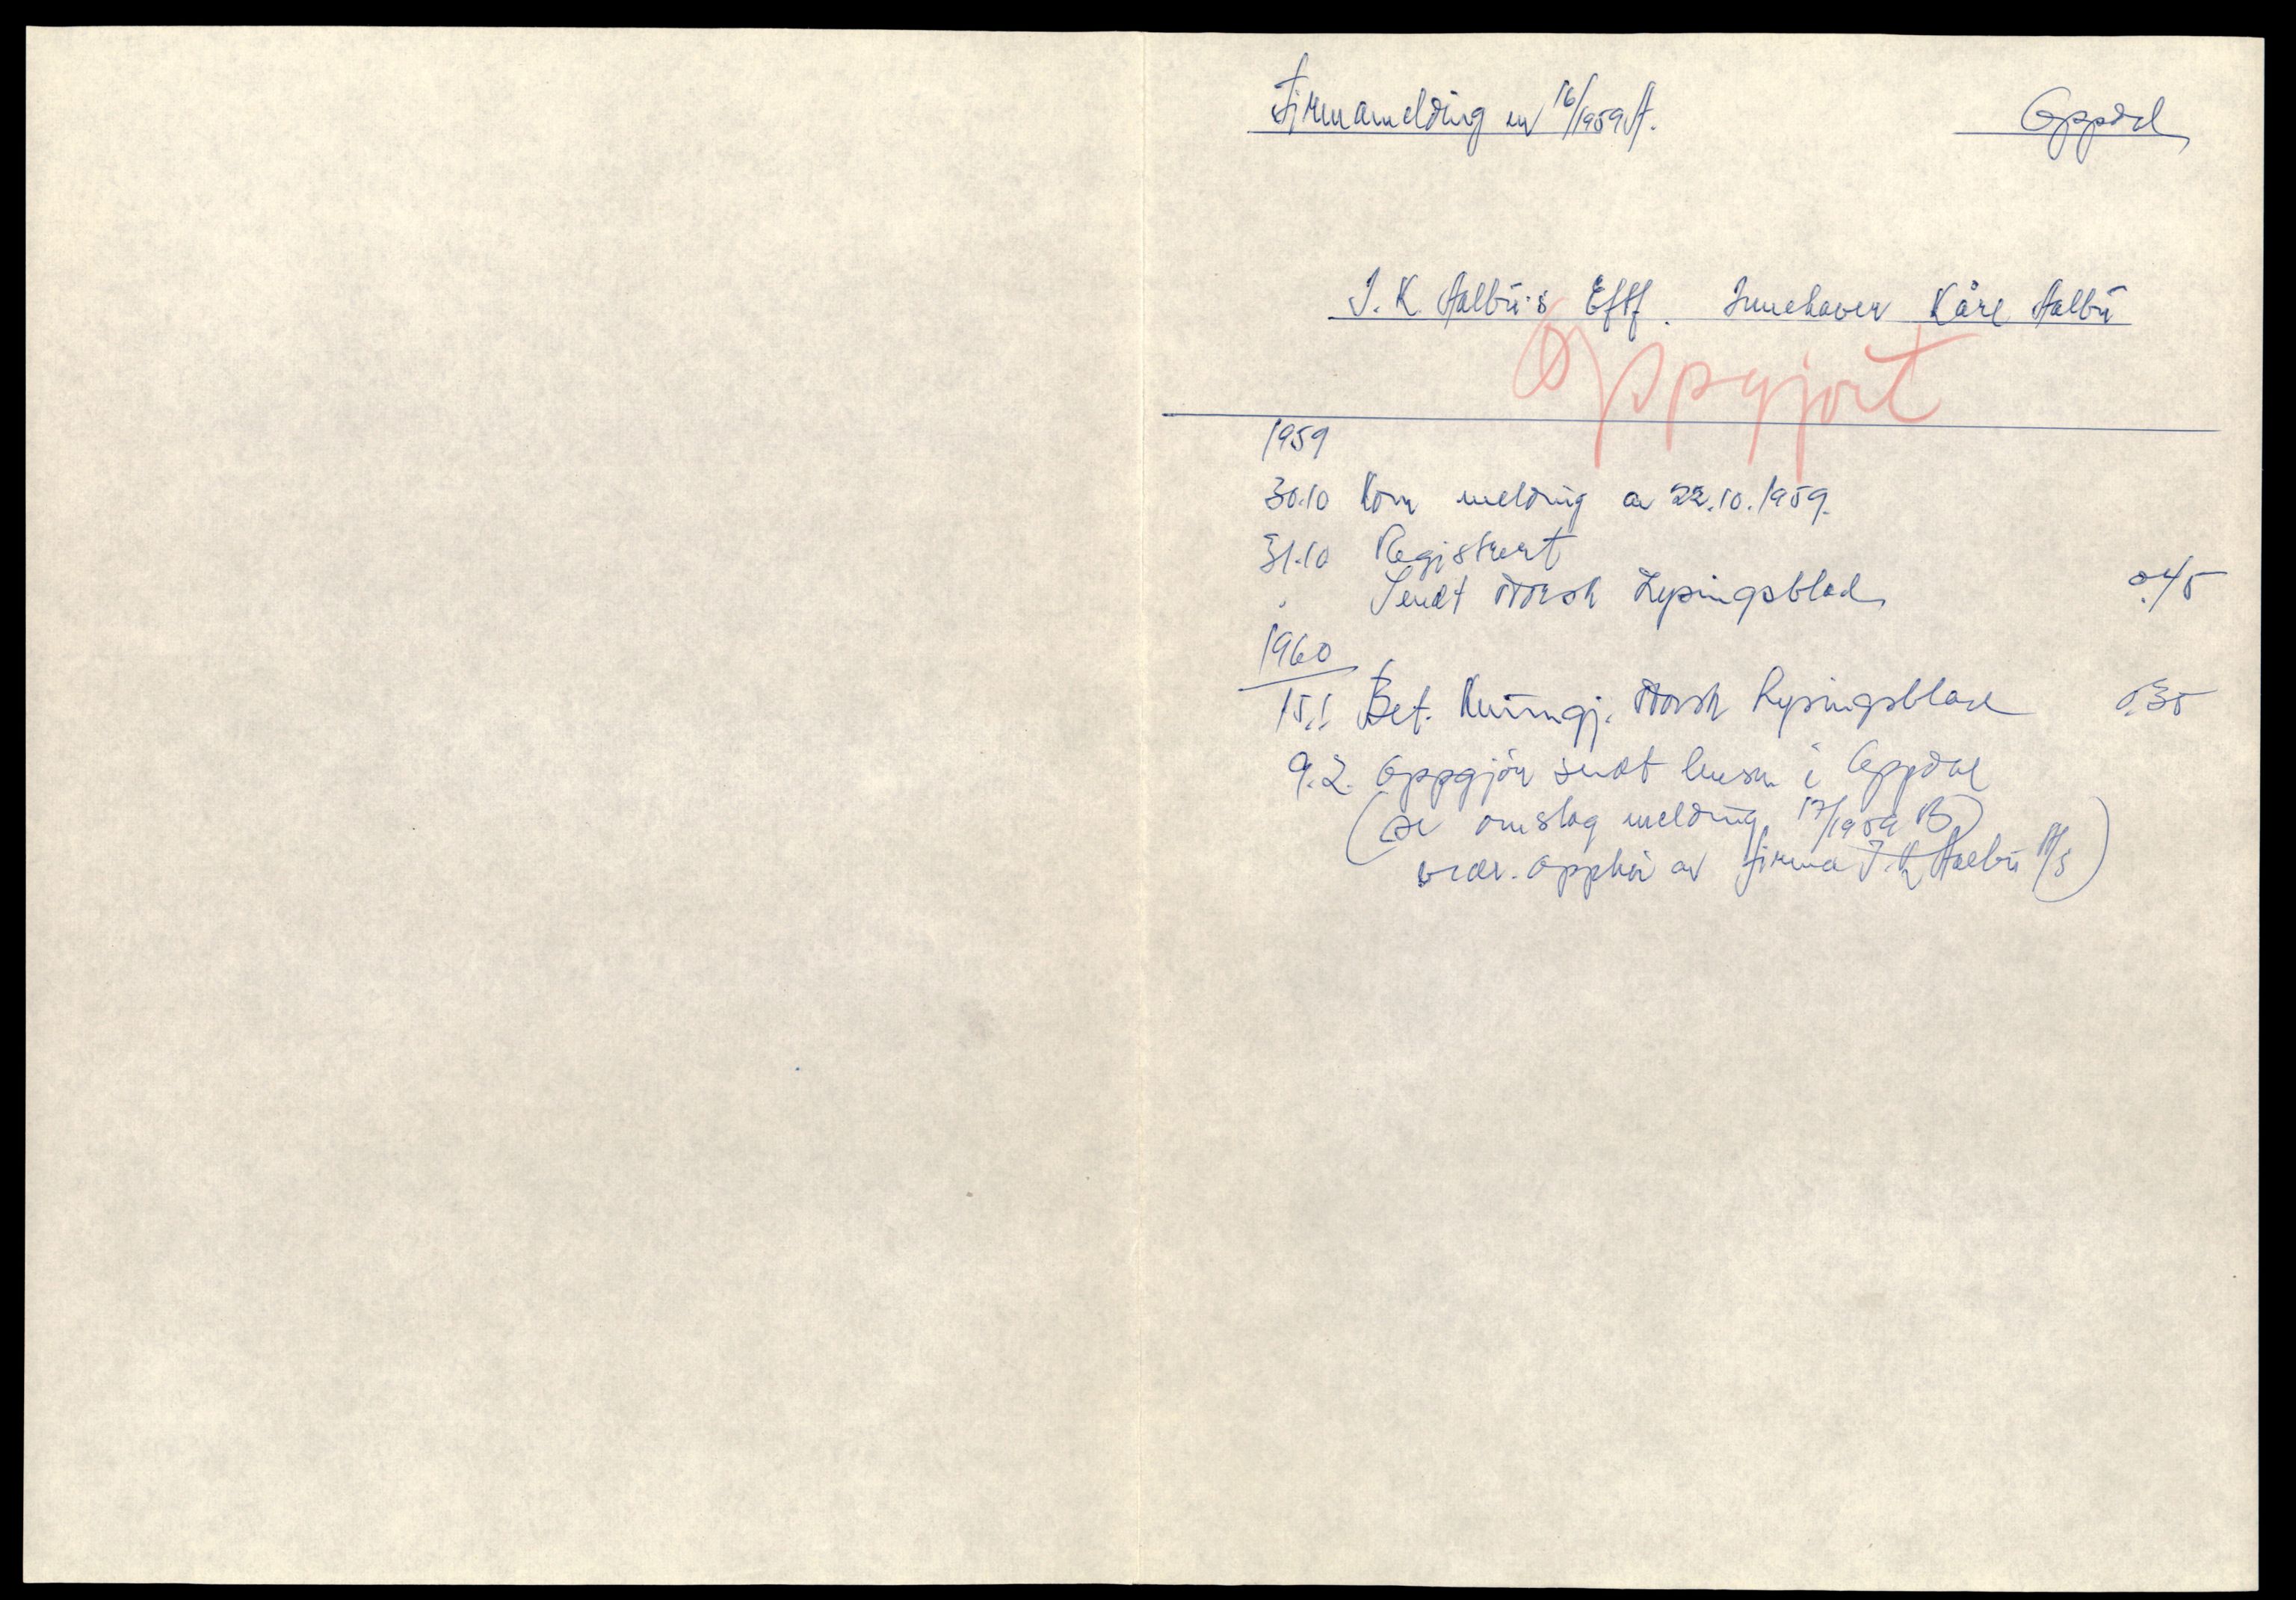 Firmamelding nr 16/1959 A.
Oppdal
J. K. Aalbu's Eftf. Innehaver Kåre Aalbu
Oppgjort
1959
30.10 Kom melding av 22.10.1959.
31.10 Registrert
" Sendt Norsk Lysingsblad 0.45
1960
15.1 Bet. kunngj. Norsk Lysingsblad 0.35
9.2. Oppgjør sendt lensm i Oppdal
(se omslag melding 17/1959 B)
vedr. opphør av firma J. K. Aalbu A/S)